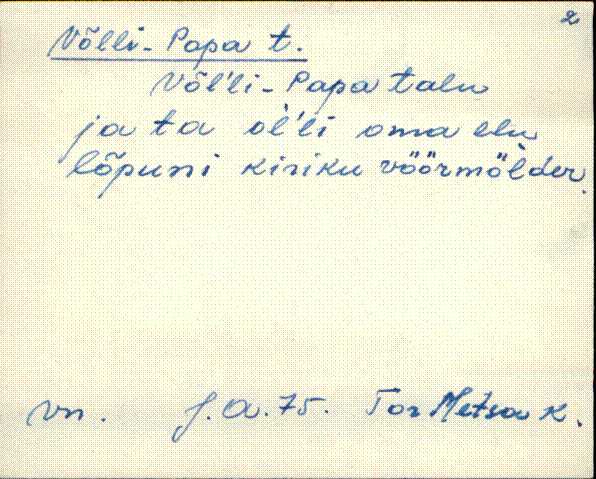 2
Võlli-Papa t.
Võl'li-Papa talu
ja ta ol'li oma elu
lõpuni kiriku vöörmölder.
Vn. J.A.75. Tor Metsa k.